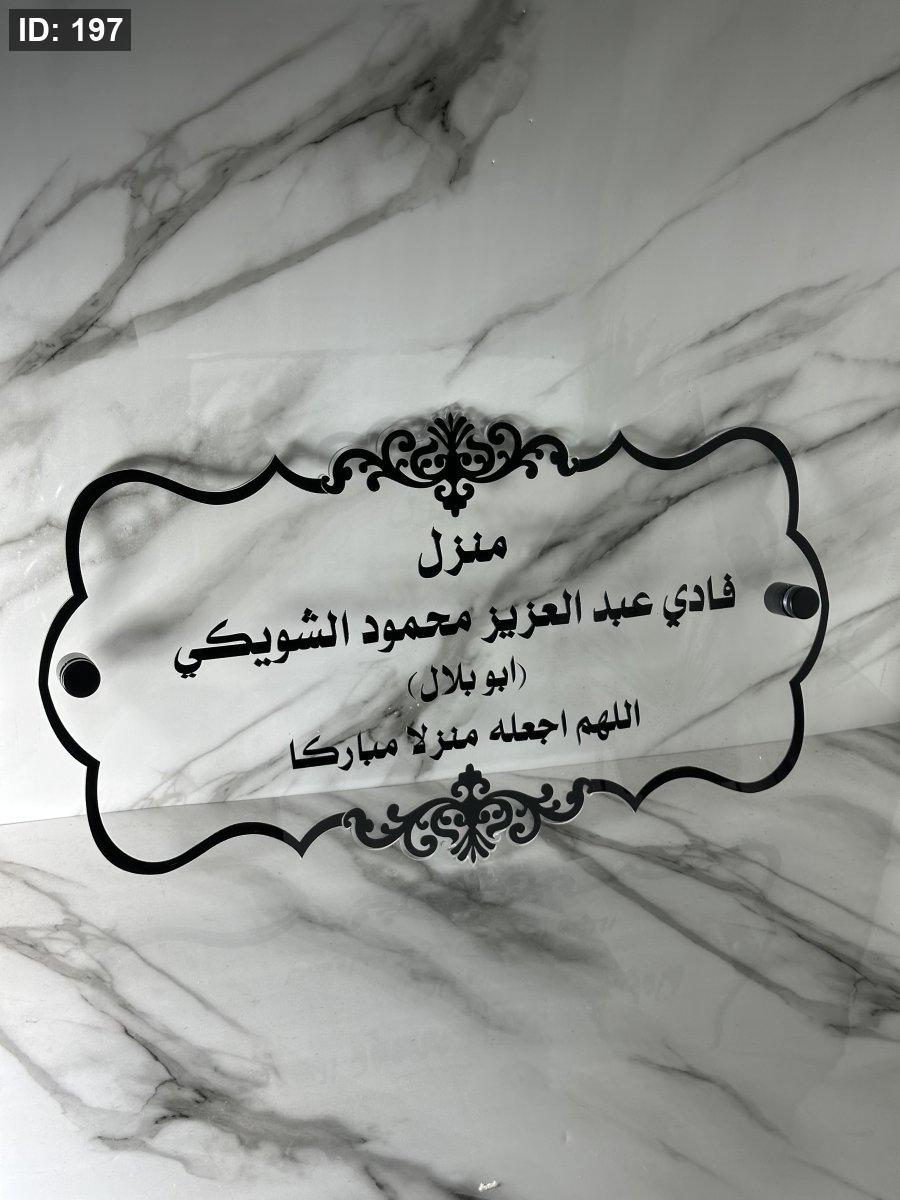 ID: 197
منزل
فادي عبد العزيز محمود الشويكي
(ابو بلال)
اللهم اجعله منزلا مباركا